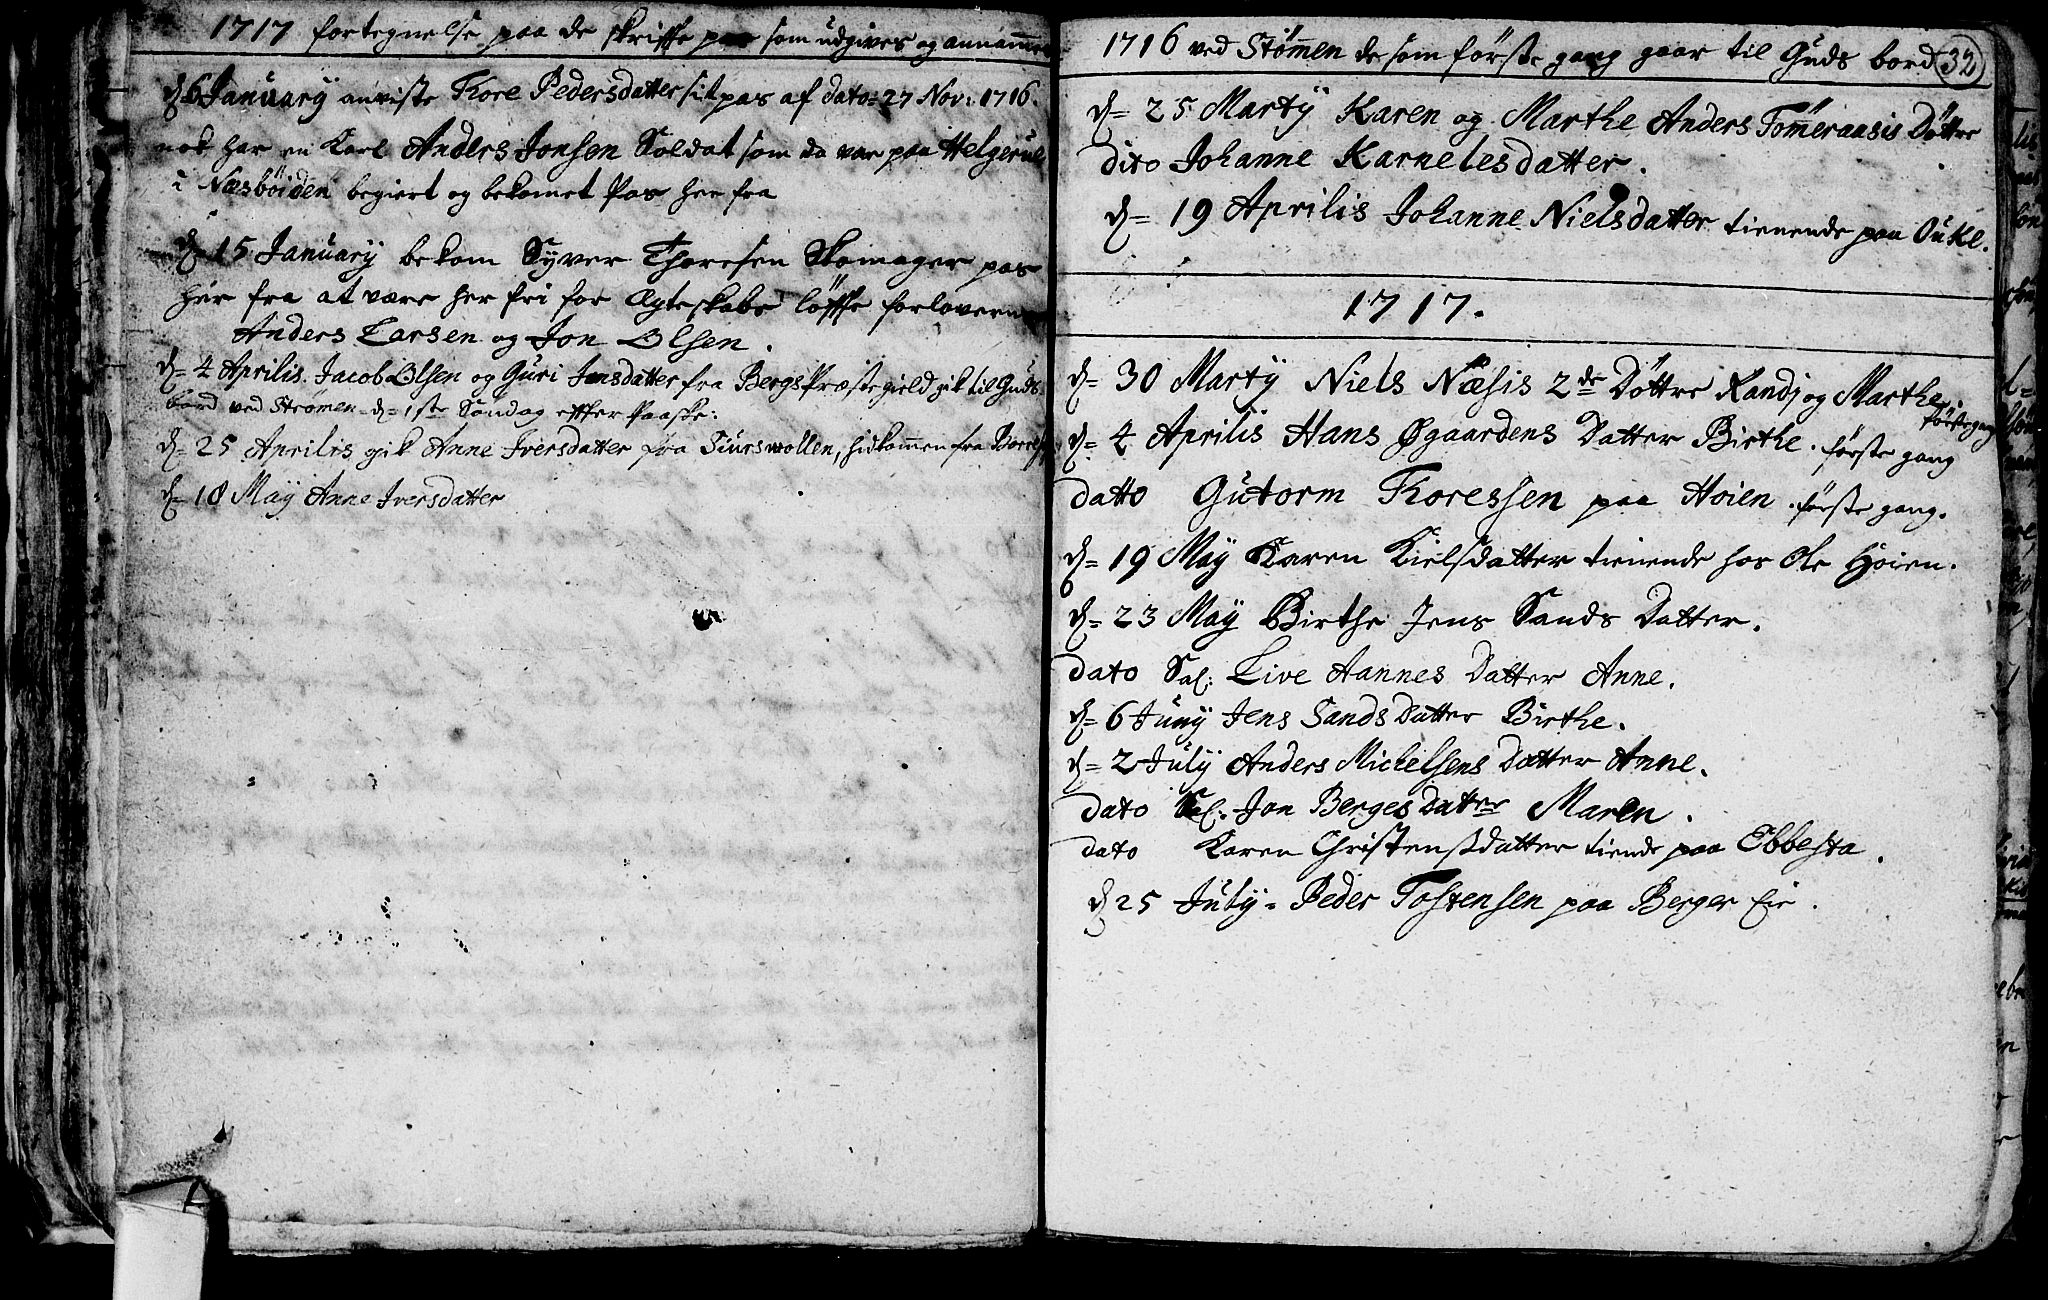 1717 fortegnelse paa de skriffe pas som udgives og annammes
d 6 January anviste Thore Pedersdatter sit pas af dato: 27 Nov: 1716.
nok har en Karl Anders Jonsen Soldat som da var paa Helgerud
i Næsböiden begiert og bekomet Pas her fra
d 15 January bekom Syver Thoresen Skomager pas
her fra at være her fri for Ægteskabs löffte forloverne
Anders Larsen og Jon Olsen.
d= 4 Aprilis. Jacob Olsen og Guri Jensdatter fra Bergs Præstegield gik til Guds
bord ved Strömen d= 1ste Söndag effter Paaske:
d= 25 Aprilis gik Anne Iversdatter fra Siurswollen, hidkommen fra
d= 18 Maÿ Anne Iversdatter
1716 ved Stömen de som förste gang gaar til Guds bord 32
d= 25 Martÿ Karen og Marthe Anders Tömeraasis Döttre
dito Johanne Karnelesdatter.
d= 19 Aprilis Johanne Nielsdatter tienende paa Oukl.
1717.
d= 30 Martÿ Niels Næsis 2de Döttre Randj og Marthe.
förste gang
d= 4 Aprilis Hans Øgaardens Datter Birthe. förste gang
datto Gutorm Thoressen paa Hoien. förste gang.
d= 19 Maÿ Karen Kielsdatter tienende hos Ole Hoien.
d= 23 Maÿ Birthe Jens Sands Datter.
dato Sal: Live Aannes Datter Anne.
d= 6 Junÿ Jens Sands Datter Birthe.
d= 2 Julÿ Anders Michelsens Datter Anne.
dato Sal: Jon Berges Datter Maren.
dato Karen Christensdatter tiende paa Ebbesta.
d 25 July = Peder Tostensen paa Berger Eie.